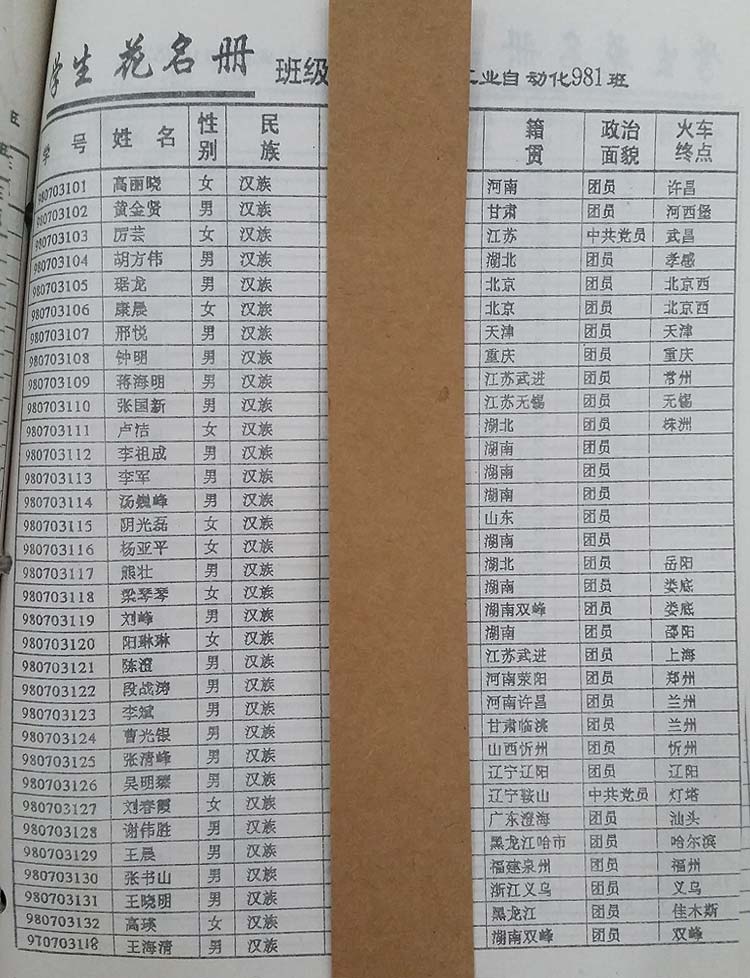 学生花名册 班级 工业自动化981班
学号 姓名 性别 民族 籍贯 政治面貌 火车终点
980703101 高丽晓 女 汉族 河南 团员 许昌
980703102 黄金贤 男 汉族 甘肃 团员 河西堡
980703103 厉芸 女 汉族 江苏 中共党员 武昌
980703104 胡方伟 男 汉族 湖北 团员 孝感
980703105 琚龙 男 汉族 北京 团员 北京西
980703106 康晨 女 汉族 北京 团员 北京西
980703107 邢悦 男 汉族 天津 团员 天津
980703108 钟明 男 汉族 重庆 团员 重庆
980703109 蒋海明 男 汉族 江苏武进 团员 常州
980703110 张国新 男 汉族 江苏无锡 团员 无锡
980703111 卢洁 女 汉族 湖北 团员 株洲
980703112 李祖成 男 汉族 湖南 团员
980703113 李军 男 汉族 湖南 团员
980703114 汤巍峰 男 汉族 湖南 团员
980703115 阴光磊 女 汉族 山东 团员
980703116 杨亚平 女 汉族 湖南 团员
980703117 熊壮 男 汉族 湖北 团员 岳阳
980703118 梁琴琴 女 汉族 湖南 团员 娄底
980703119 刘峰 男 汉族 湖南双峰 团员 娄底
980703120 阳琳琳 女 汉族 湖南 团员 邵阳
980703121 陈澄 男 汉族 江苏武进 团员 上海
980703122 段战涛 男 汉族 河南荥阳 团员 郑州
980703123 李斌 男 汉族 河南许昌 团员 兰州
980703124 曹光银 男 汉族 甘肃临洮 团员 兰州
980703125 张清峰 男 汉族 山西忻州 团员 忻州
980703126 吴明 男 汉族 辽宁辽阳 团员 辽阳
980703127 刘春霞 女 汉族 辽宁鞍山 中共党员 灯塔
980703128 谢伟胜 男 汉族 广东澄海 团员 汕头
980703129 王晨 男 汉族 黑龙江哈市 团员 哈尔滨
980703130 张书山 男 汉族 福建泉州 团员 福州
980703131 王晓明 男 汉族 浙江义乌 团员 义乌
980703132 高瑛 女 汉族 黑龙江 团员 佳木斯
970703118 王海清 男 汉族 湖南双峰 团员 双峰